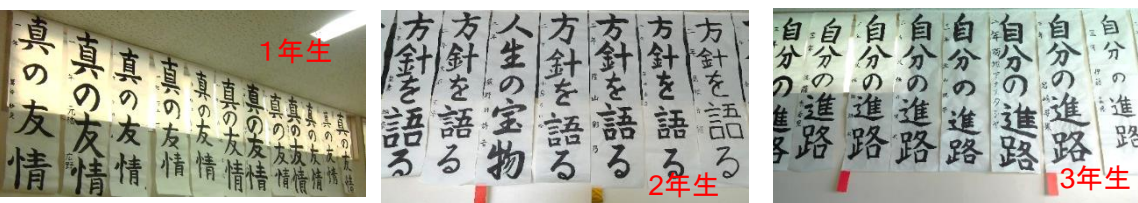 1年生
真の友情
真の友情
真の友情
真の友情
真の友情
真の友情
真の友情
真の友情
真の友情
真の友情
真の友情
2年生
方針を語る
方針を語る
人生の宝物
方針を語る
方針を語る
方針を語る
方針を語る
3年生
自分の進
自分の進路
自分の進路
自分の進路
自分の進路
自分の進路
自分の進路
自分の進路